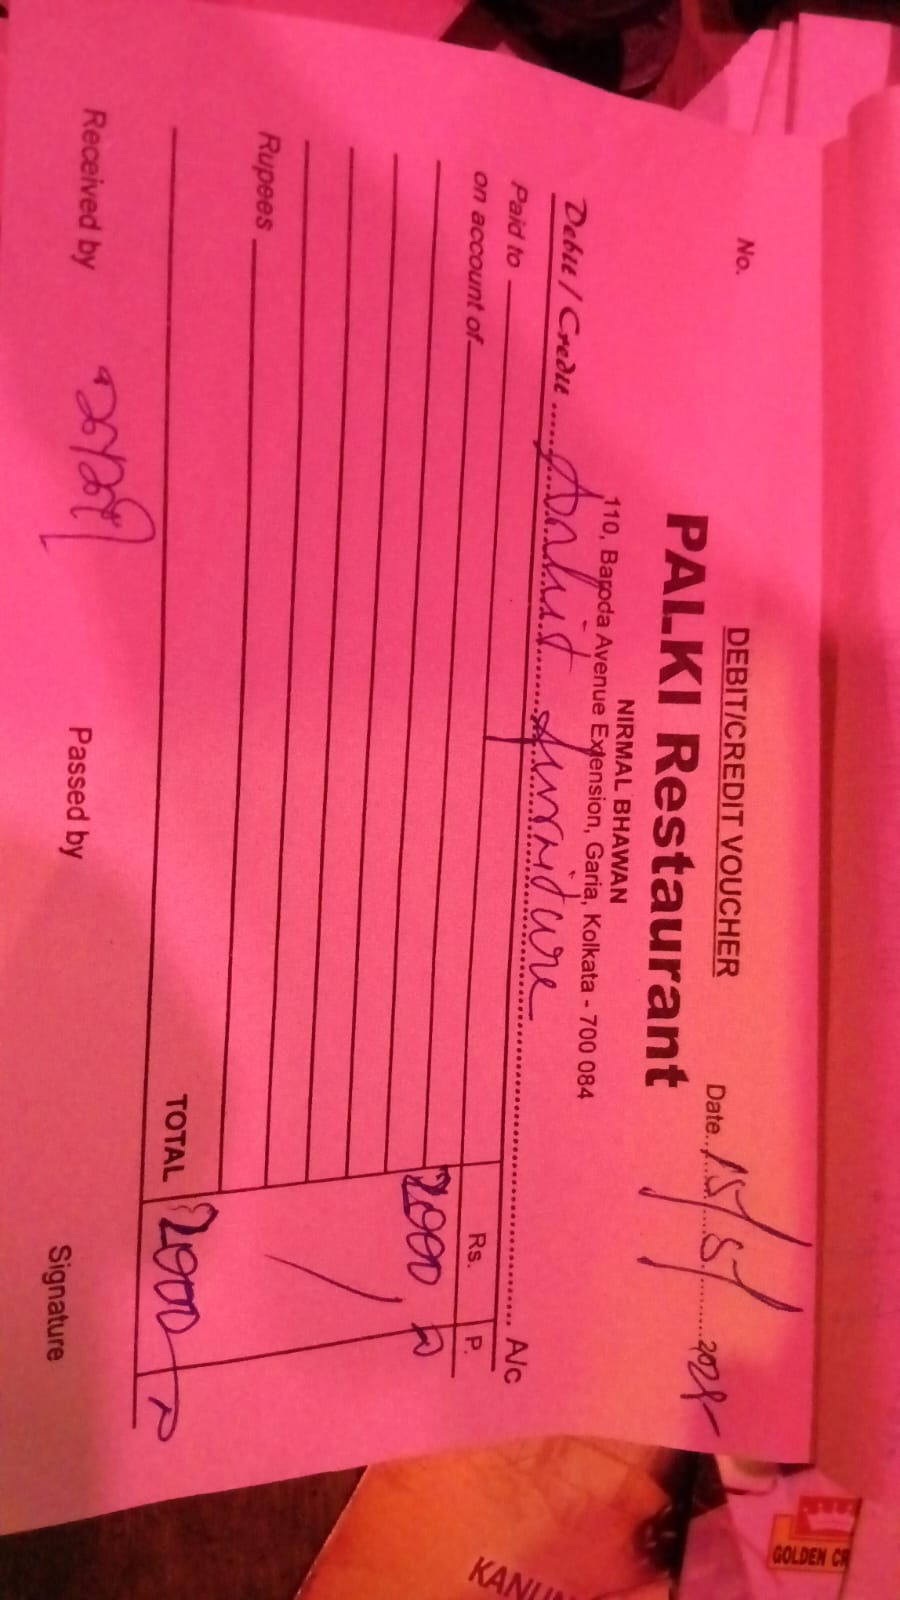 DEBIT/CREDIT VOUCHER
No.
Date 15/5/2025
PALKI Restaurant
NIRMAL BHAWAN
110, Baroda Avenue Extension, Garia, Kolkata - 700 084
Debit / Credit Furniture A/c
Paid to
on account of Rs. P.
2000
Rupees
TOTAL 2000
Received by Passed by Signature
GOLDEN CR
KANUN